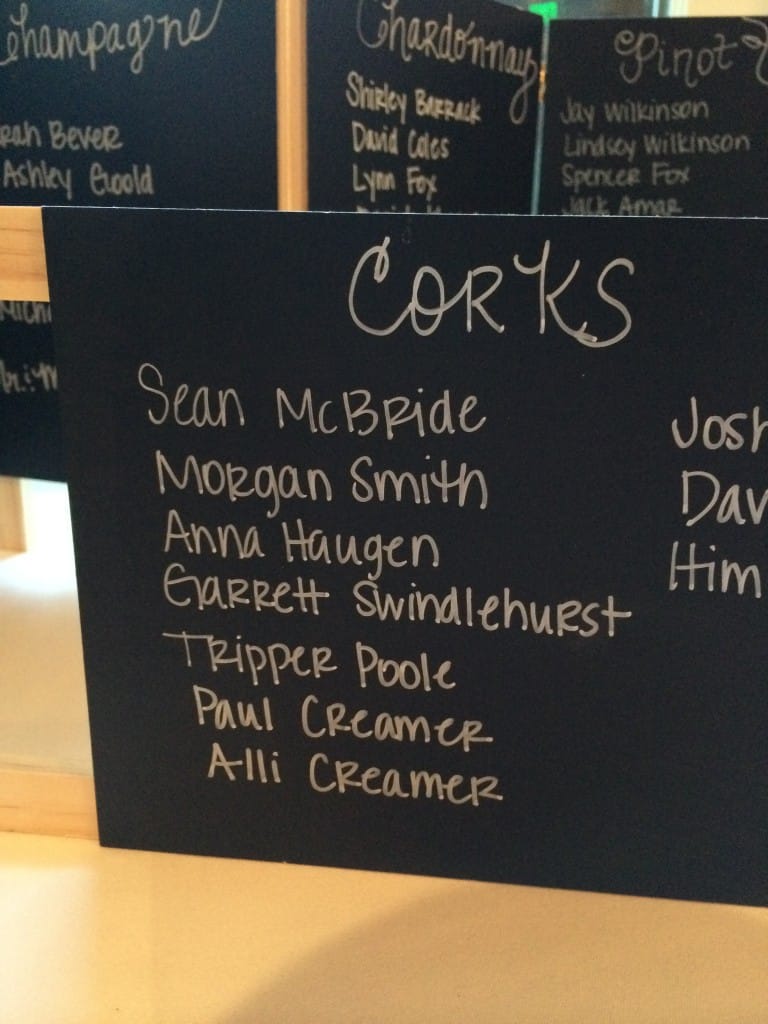 Champagne
Ashley Goold
Chardonnay
Shirley Barrack
David Coles
Lynn Fox
Pinot
Jay Wilkinson
Lindsey Wilkinson
Spencer Fox
Jack Amar
Corks
Sean McBride
Morgan Smith
Anna Haugen
Garrett Swindlehurst
Tripper Poole
Paul Creamer
Alli Creamer
Josh
Dav
Him